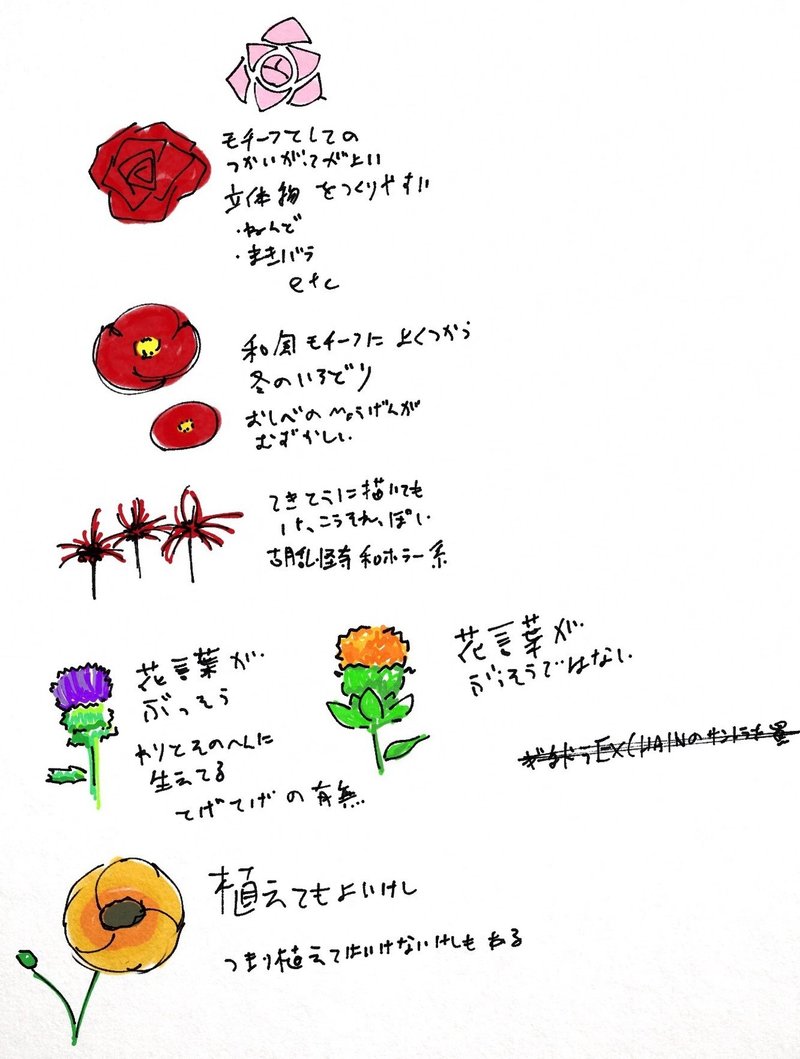 モチーフとしての
つかいがってが上い
立体物をつくりやすい
・ねんど
・まきバラ
etc
和風モチーフによくつかう
冬のいろどり
おしべのひょうげんが
むずかしい
てきとうに描いても
けっこうそれっぽい
胡乱怪奇和ホラー系
花言葉が
ぶっそう
わりとそのへんに
生えてる
てげてげの有無
花言葉が
ぶっそうではない
EXCHAINのサントラ
植えてもよいけし
つまり植えてはいけないけしもある